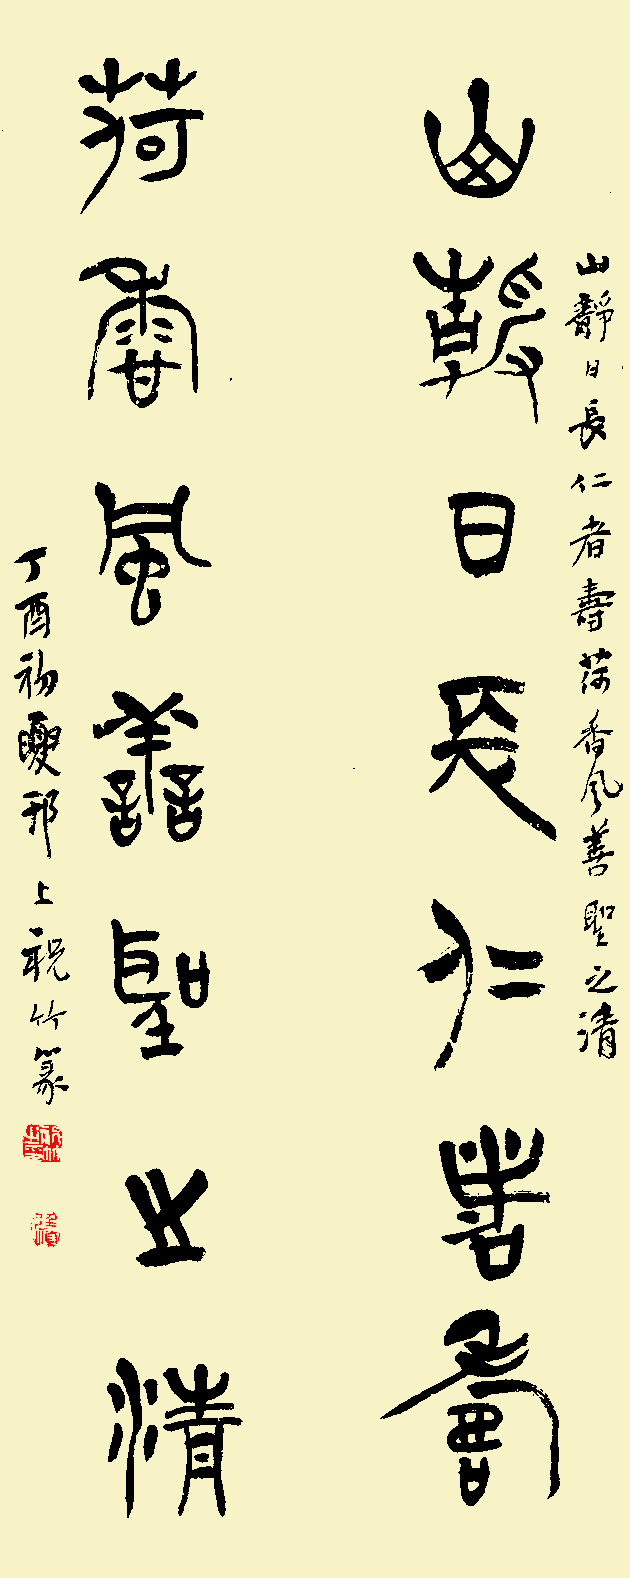 山靜日長仁者壽
山靜日長仁者壽荷香風善聖之清
荷香風善聖之清
丁酉初夏邗上祝竹篆